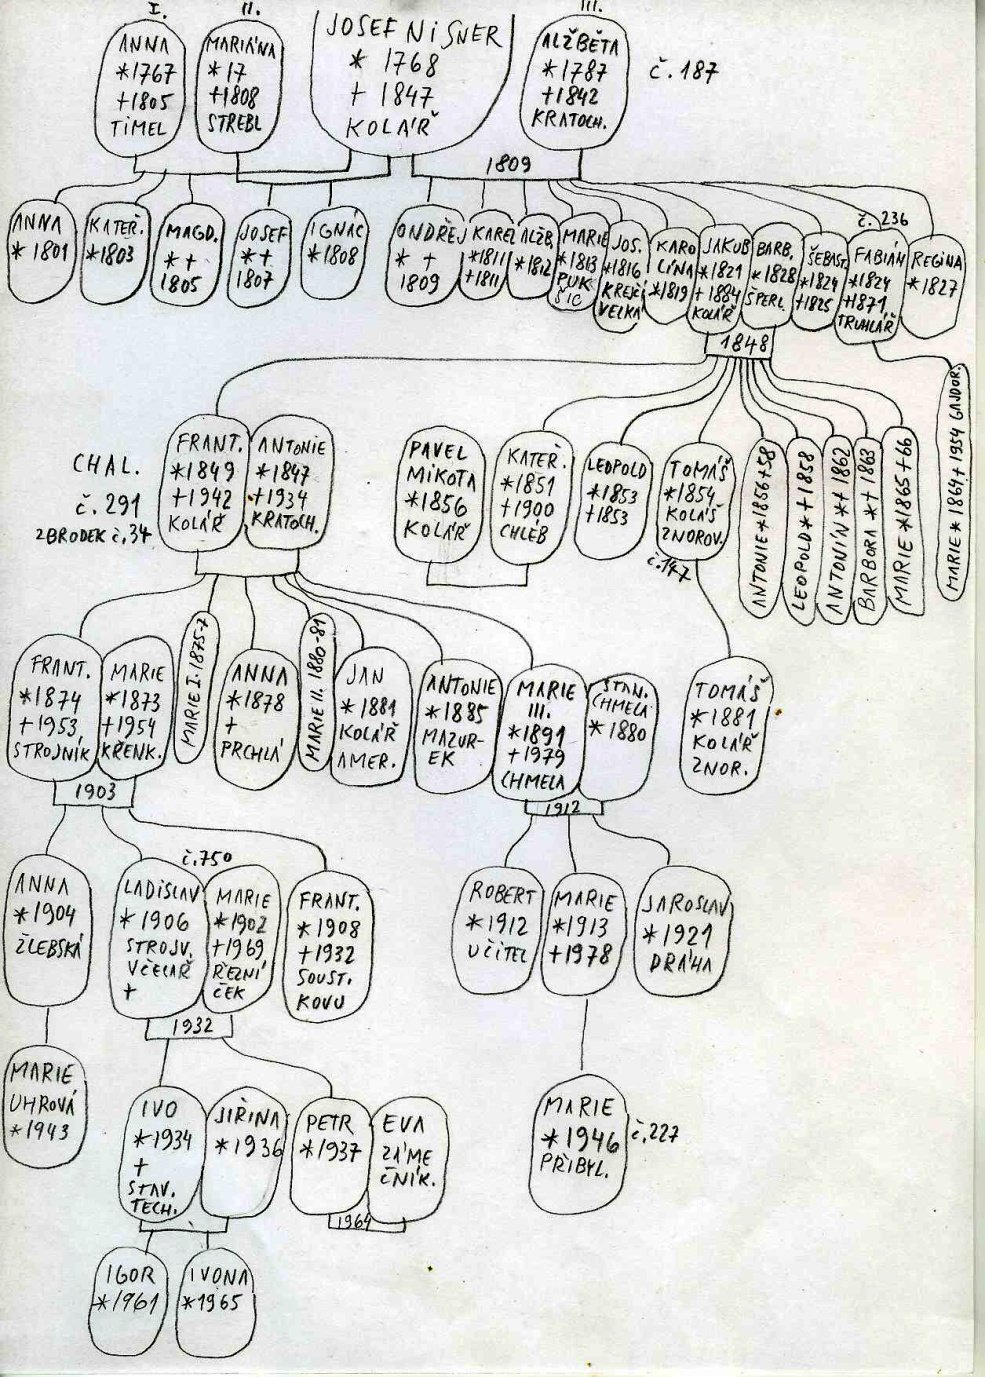 I.
ANNA
*1767
+1805
TIMEL
II.
MARIÁNA
*17
+1808
STREBL
JOSEF NISNER
* 1768
+ 1847
KOLÁŘ
III.
ALŽBĚTA
*1787
+1842
KRATOCH.
č. 187
1809
ANNA
* 1801
KATEŘ.
*1803
MAGD.
*+
1805
JOSEF
*+
1807
IGNÁC
*1808
ONDŘEJ
* +
1809
KAREL
*1811
+1811
ALŽB.
*1812
MARIE
*1813
PUK
ŠIC
JOS.
*1816
KREJČÍ
VELKÁ
KARO
LÍNA
*1819
JAKUB
*1821
+1884
KOLÁŘ
BARB.
*1828
ŠPERL.
ŠEBAST.
*1824
+1825
č. 236
FABIÁN
*1824
+1871
TRUHLÁŘ
REGINA
*1827
1848
MARIE *1864 +1954 GAJDOR.
CHAL.
č. 291
ZBRODEK č. 34
FRANT.
*1849
+1942
KOLÁŘ
ANTONIE
*1847
+1934
KRATOCH.
PAVEL
MIKOTA
*1856
KOLÁŘ
KATEŘ.
*1851
+1900
CHLÉB
LEOPOLD
*1853
+1853
TOMÁŠ
*1854
KOLÁŠ
ZNOROV.
č. 147
ANTONIE *1856+58
LEOPOLD *+1858
ANTONÍN *+ 1862
BARBORA *+ 1863
MARIE *1865+66
FRANT.
*1874
+1953
STROJNÍK
MARIE
*1873
+1954
KŘENK.
MARIE I. 1875-7
ANNA
*1878
+
PRCHLÁ
MARIE II. 1880-81
JAN
* 1881
KOLÁŘ
AMER.
ANTONIE
*1885
MAZUR-
EK
MARIE
III.
*1891
+1979
CHMELA
STAN.
CHMELA
*1880
TOMÁŠ
*1881
KOLÁŘ
ZNOR.
1903
1912
ANNA
*1904
ŽLEBSKÁ
LADISLAV
*1906
STROJV.
VČELAŘ
+
č. 750
MARIE
*1902
+1969
ŘEZNÍ
ČEK
FRANT.
*1908
+1932
SOUST.
KOVU
ROBERT
*1912
UČITEL
MARIE
*1913
+1978
JAROSLAV
*1921
DRÁHA
1932
MARIE
UHROVÁ
*1943
IVO
*1934
+
STAV.
TECH.
JIŘINA
*1936
PETR
*1937
EVA
ZÁME
ČNÍK.
1964
MARIE
*1946
PŘIBYL.
č. 227
IGOR
*1961
IVONA
*1965